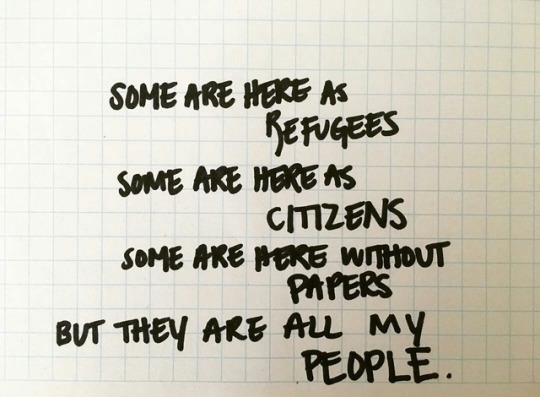 SOME ARE HERE AS
REFUGEES
SOME ARE HERE AS
CITIZENS
SOME ARE HERE WITHOUT
PAPERS
BUT THEY ARE ALL MY
PEOPLE.